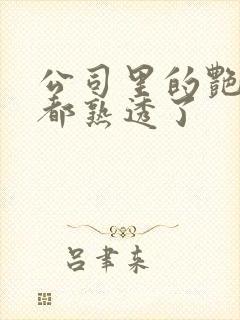 公司里的艷
都熟透了
吕聿来